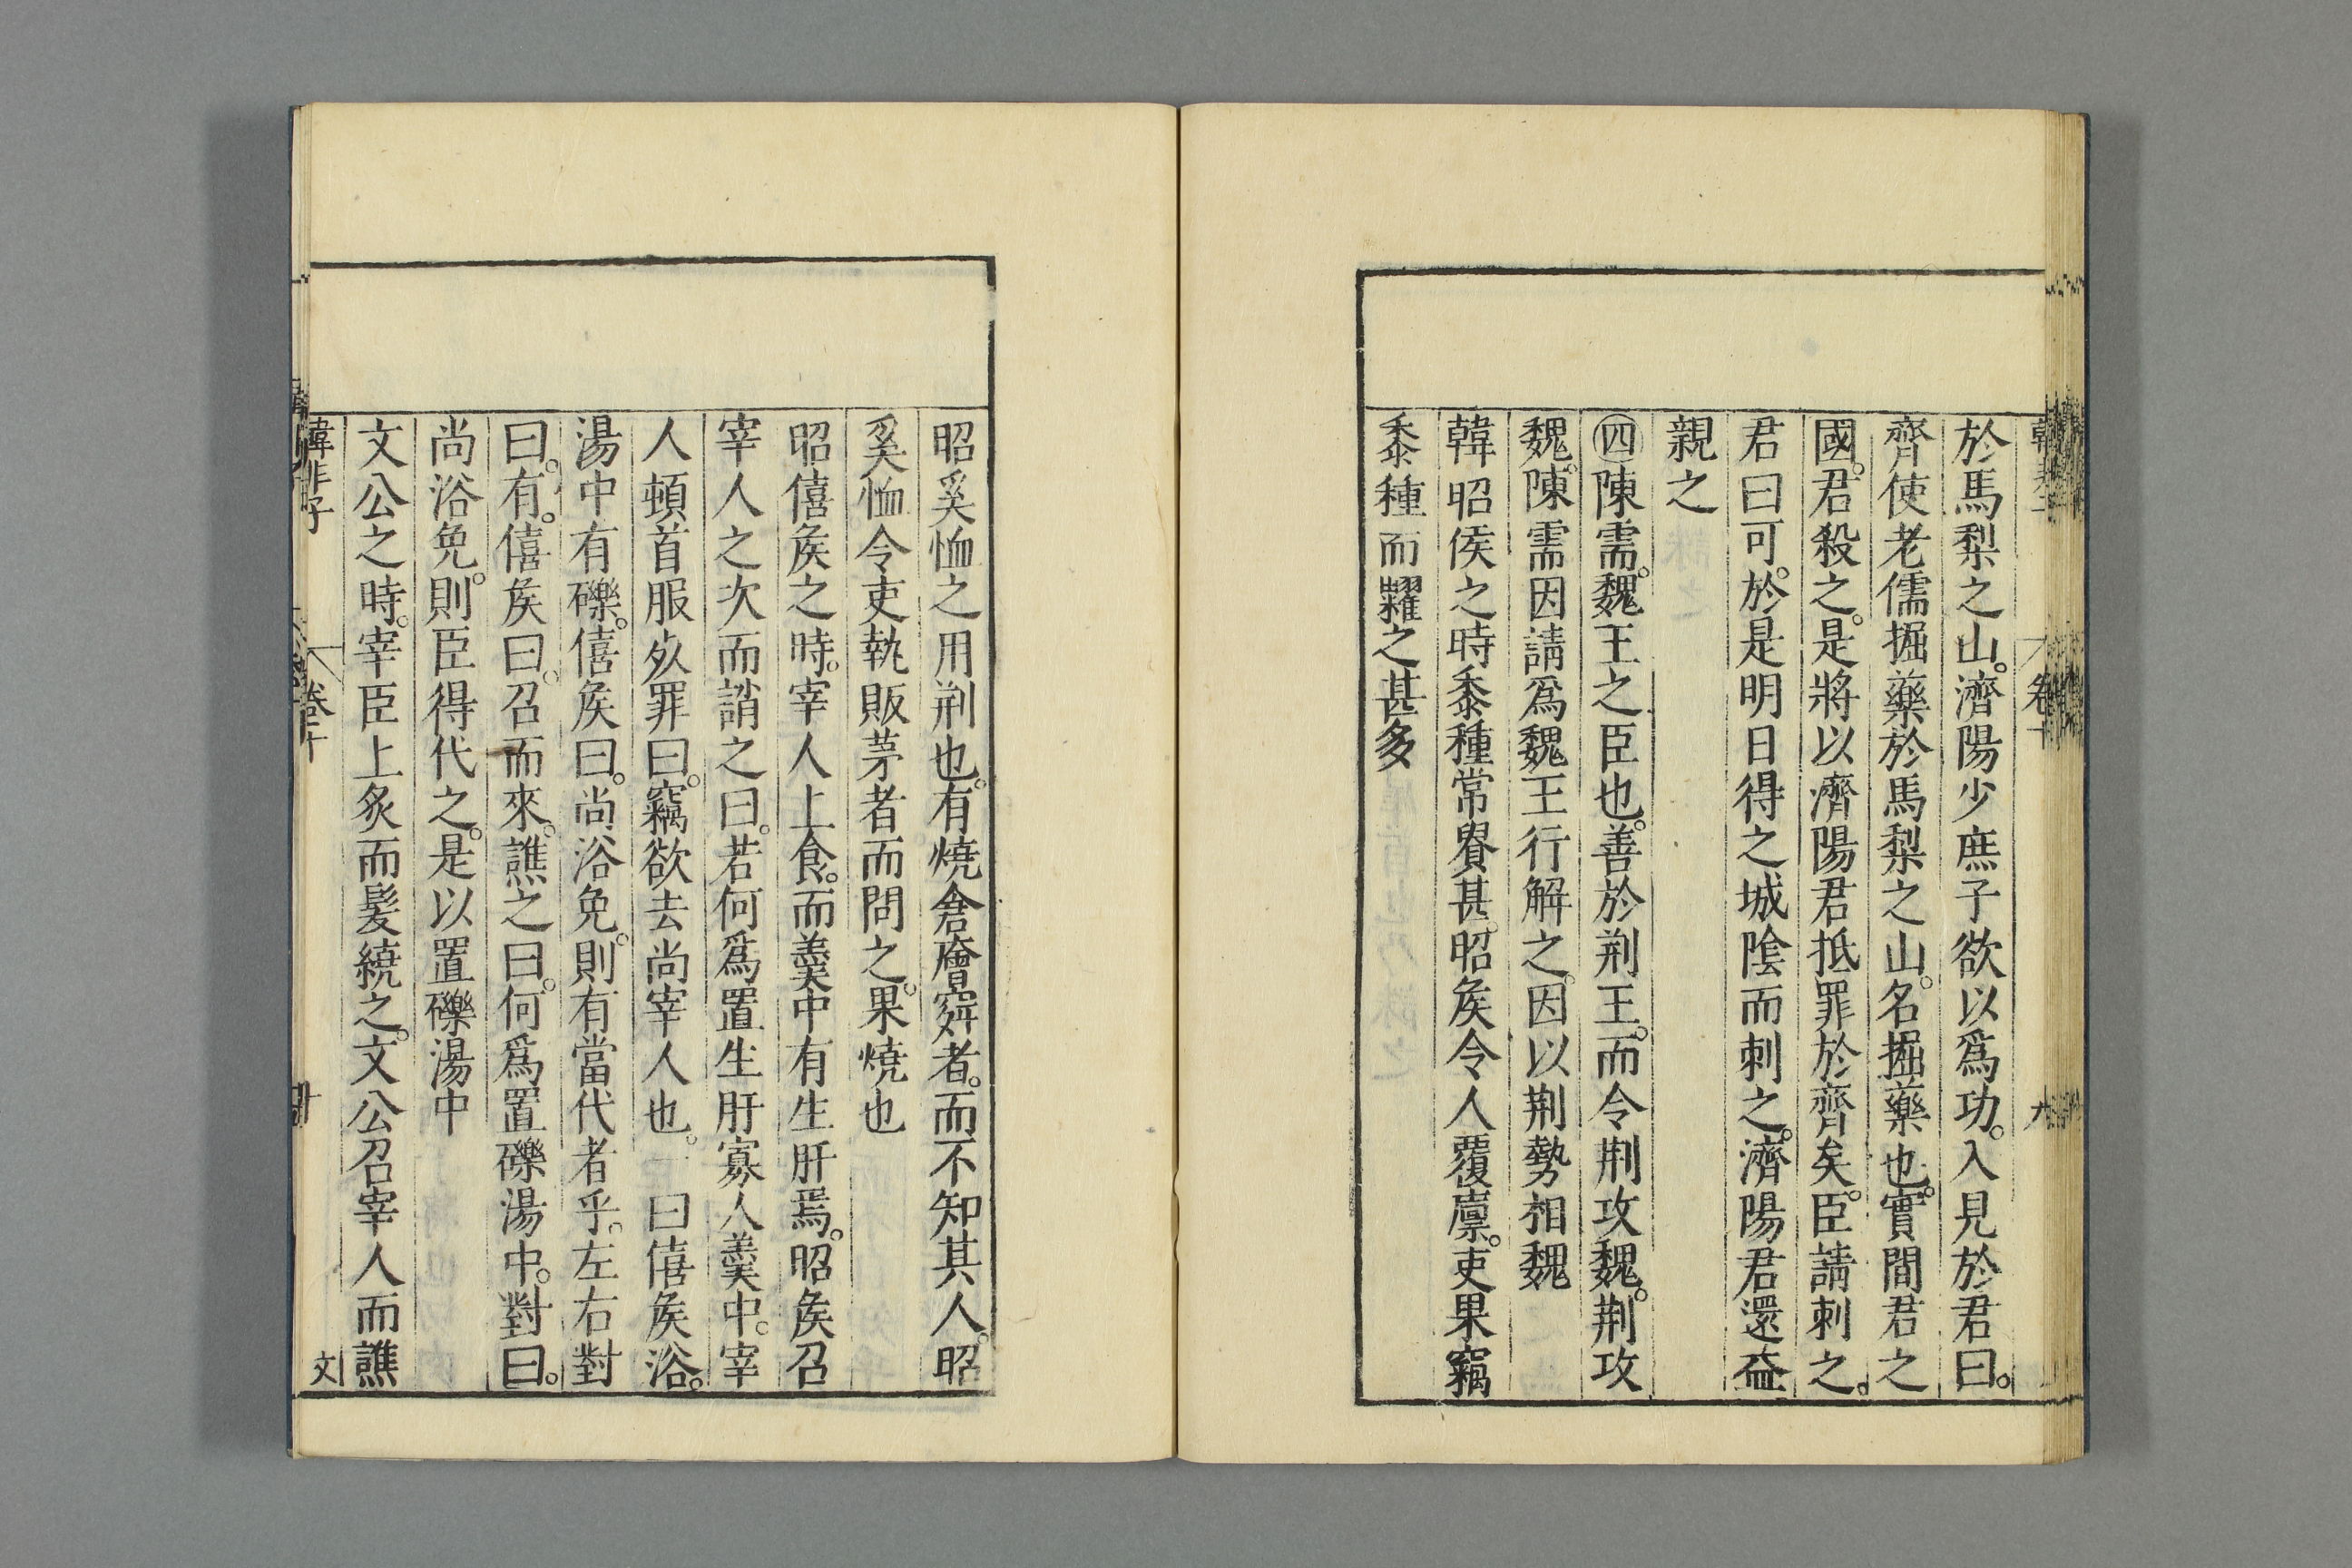 於馬梨之山。濟陽少庶子欲以爲功。入見於君曰。
齊使老儒掘藥於馬梨之山。名掘藥也。實間君之
國。君殺之。是將以濟陽君抵罪於齊矣。臣請刺之。
君曰可。於是明日得之城陰而刺之。濟陽君還益
親之
四陳需。魏王之臣也。善於荆王。而令荆攻魏。荆攻
魏。陳需因請爲魏王行解之。因以荆勢相魏
韓昭侯之時黍種常貴甚。昭矦令人覆廩。吏果竊
黍種而糶之甚多
昭奚恤之用荆也。有燒倉廥窌者。而不知其人。昭
奚恤令吏執販茅者而問之。果燒也
昭僖矦之時。宰人上食。而羹中有生肝焉。昭矦召
宰人之次而誚之曰。若何爲置生肝寡人羹中。宰
人頓首服死罪曰。竊欲去尚宰人也。一曰僖矦浴。
湯中有礫。僖矦曰。尚浴免。則有當代者乎。左右對
曰。有。僖矦曰。召而來。譙之曰。何爲置礫湯中。對曰。
尚浴免。則臣得代之。是以置礫湯中
文公之時。宰臣上炙而髮繞之。文公召宰人而譙
韓非子 卷十 十 文